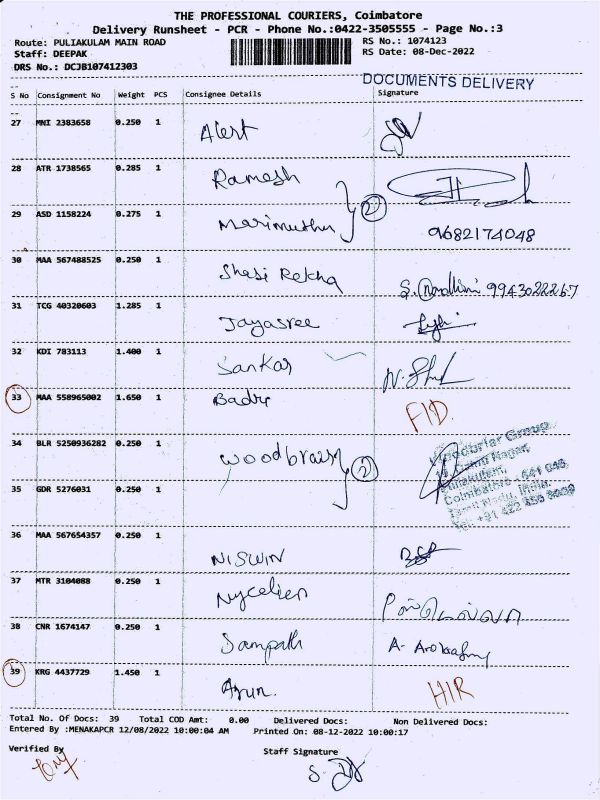 THE PROFESSIONAL COURIERS, Coimbatore
Delivery Runsheet - PCR - Phone No.:0422-3505555 - Page No.:3
Route: PULIAKULAM MAIN ROAD
RS No.: 1074123
Staff: DEEPAK
RS Date: 08-Dec-2022
DRS No.: DCJB107412303
DOCUMENTS DELIVERY
S No Consignment No Weight PCS Consignee Details Signature
27 MNI 2383658 0.250 1 Alert
28 ATR 1738565 0.285 1 Ramesh
29 ASD 1158224 0.275 1 Marimuthu 2 9682174048
30 MAA 567488525 0.250 1 Shasi Rekha S. Nandhini 9943022267
31 TCG 40320603 1.285 1 Jayasree
32 KDI 783113 1.400 1 Sankar
33 MAA 558965002 1.650 1 Badri FID.
34 BLR 5250936282 0.250 1 Woodbraisy 2
Woodbriar Group
Nagar,
Puliakulam,
Coimbatore - 641 045
Tamil Nadu, India.
35 GDR 5276031 0.250 1
36 MAA 567654357 0.250 1 NISWIN
37 MTR 3104088 0.250 1 Nycelien
38 CNR 1674147 0.250 1 Sampath
39 KRG 4437729 1.450 1 Arun. HIR
Total No. Of Docs: 39 Total COD Amt: 0.00 Delivered Docs: Non Delivered Docs:
Entered By :MENAKAPCR 12/08/2022 10:00:04 AM Printed On: 08-12-2022 10:00:17
Verified By Staff Signature